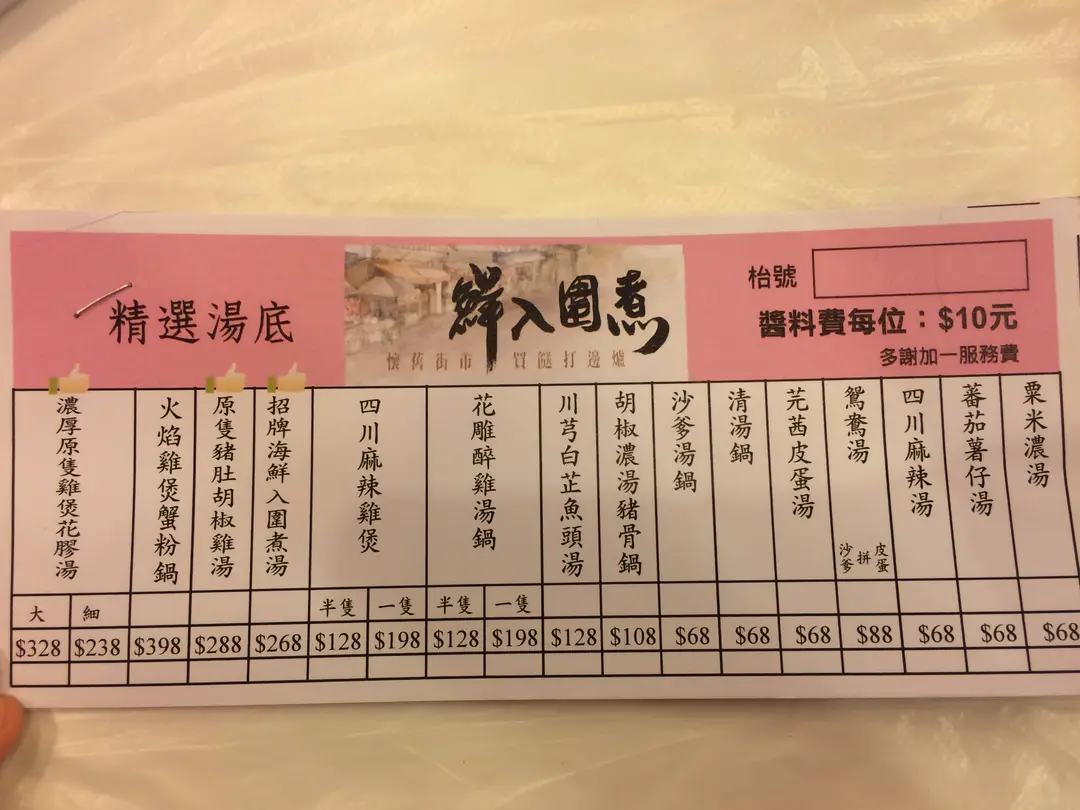 精選湯底
鮮入圍煮
懷舊街市 買餸打邊爐
枱號
醬料費每位：$10元
多謝加一服務費
濃厚原隻雞煲花膠湯
大 $328
細 $238
火焰雞煲蟹粉鍋
$398
原隻豬肚胡椒雞湯
$288
招牌海鮮入圍煮湯
$268
四川麻辣雞煲
半隻 $128
一隻 $198
花雕醉雞湯鍋
半隻 $128
一隻 $198
川芎白芷魚頭湯
$128
胡椒濃湯豬骨鍋
$108
沙爹湯鍋
$68
清湯鍋
$68
芫茜皮蛋湯
$68
鴛鴦湯
沙爹拼皮蛋
$88
四川麻辣湯
$68
蕃茄薯仔湯
$68
粟米濃湯
$68